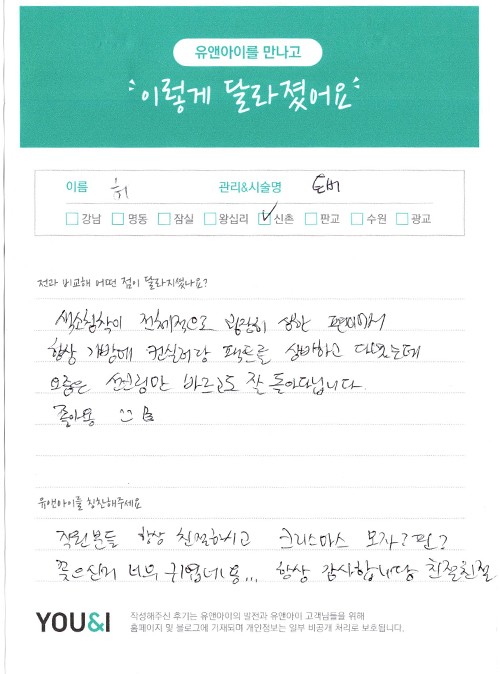 유앤아이를 만나고
이렇게 달라졌어요
이름 휘 관리&시술명 토버
강남 명동 잠실 왕십리 신촌 판교 수원 광교
전과 비교해 어떤 점이 달라지셨나요?
색소침착이 전체적으로 굉장히 심한 편이어서
항상 가방에 컨실러랑 팩트를 상비하고 다녔는데
요즘은 선크림만 바르고도 잘 돌아다닙니다.
좋아용
유앤아이를 칭찬해주세요
직원분들 항상 친절하시고 크리스마스 모자? 핀?
꽂으신거 너무 귀엽네용... 항상 감사합니당 친절친절
YOU&I
작성해주신 후기는 유앤아이의 발전과 유앤아이 고객님들을 위해
홈페이지 및 블로그에 기재되며 개인정보는 일부 비공개 처리로 보호됩니다.